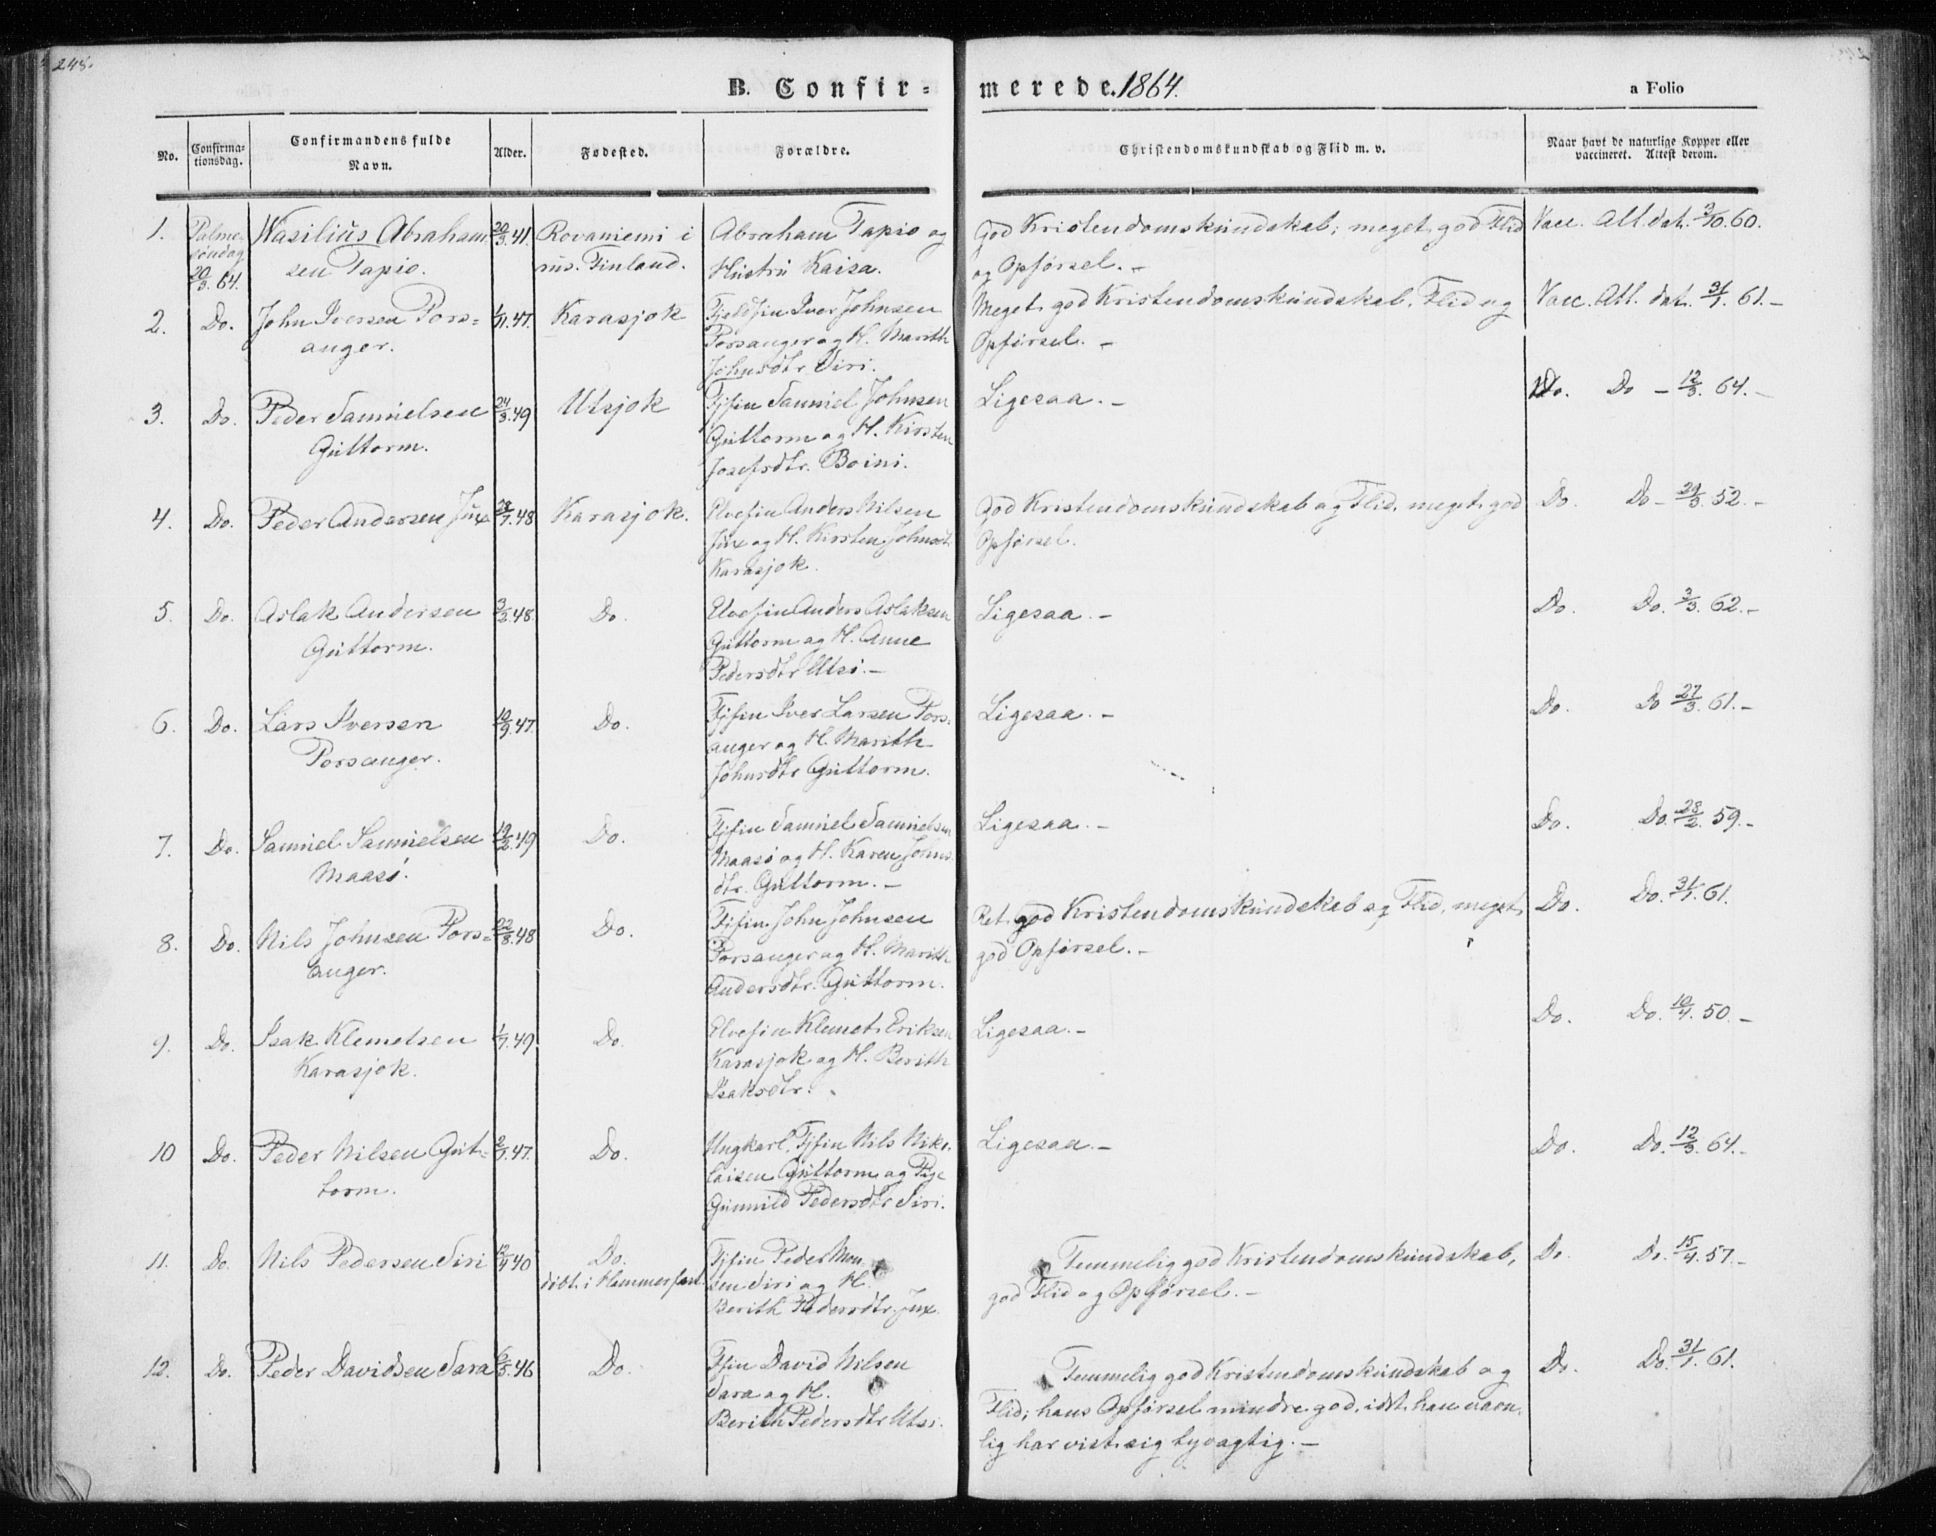 248.
B. Confir=
merede. 1864.
a Folio
No.
Confirma-
tionsdag.
Confirmandens fulde
Navn.
Alder.
Fødested.
Forældre.
Christendomskundskab og Flid m. v.
Naar havt de naturlige Kopper eller
vaccineret. Attest derom.
1. Palme- Wasilius Abraham 20/3.41. Rovaniemi i Abraham Tapio og God Kristendomskundskab; meget god Flid Vacc. Att. dat. 3/10.60.
søndag sen Tapio. rus. Finland. Hustru Kaisa. og Opførsel. -
20/3.64.
2. Do. John Iversen Pors= 1/11.47. Karasjok Fjeldfin Iver Johnsen Meget god Kristendomskundskab, Flid og Vacc. Att. dat. 31/1.61.-
anger. Porsanger og H. Marith Opførsel. -
Johnsdtr Siri.
3. Do. Peder Samuelsen 24/3.49 Utsjok Fjfin Samuel Johnsen Ligesaa. - Do. Do - 12/3.64.-
Guttorm. Guttorm og H. Kirsten
Josefsdtr. Boini.
4. Do. Peder Andersen Jux 28/7.48 Karasjok. Elvefin Anders Nilsen God Kristendomskundskab og Flid, meget god Do. Do - 29/3.52.-
Jux og H. Kirsten Johnsdt. Opførsel.
Karasjok.
5. Do. Aslak Andersen 3/2.48. Do. Elvefin Anders Aslaksen Ligesaa. - Do. Do. 3/3.62.-
Guttorm. Guttorm og H. Anne
Pedersdtr Utsi. -
6. Do. Lars Iversen 10/9.47. Do. Fjfin Iver Larsen Pors= Ligesaa. - Do. Do 27/3.61.-
Porsanger. anger og H. Marith
Johnsdtr Guttorm.
7. Do. Samuel Samuelsen 19/2.49 Do. Fjfin Samuel Samuelsen Ligesaa. - Do. Do. 28/2.59.-
Maasø. Maasø og H. Karen Johns
dtr. Guttorm. -
8. Do. Nils Johnsen Pors= 22/8.48 Do. Fjfin John Johnsen Ret god Kristendomskundskab og Flid, meget Do. Do. 31/1.61.
anger. Porsanger og H. Marith god Opførsel. -
Andersdtr. Guttorm.
9. Do. Isak Klemetsen 1/7.49. Do. Elvefin Klemet Eriksen Ligesaa. - Do. Do. 10/4.50.-
Karasjok. Karasjok og H. Berith
Isaksdtr.
10 Do. Peder Nilsen Gut= 2/7.47. Do. Ungkarl, Fjfin Nils Niko- Ligesaa. - Do. Do. 12/3.64.-
torm. laisen Guttorm og Pige
Gunnild Pedersdtr Siri.
11. Do. Nils Pedersen Siri 12/4.40 Do. Fjfin Peder Mon Temmelig god Kristendomskundskab, Do. Do. 15/4.57.-
døbt i Hammerfest. sen Siri og H. god Flid og Opførsel. -
Berith Pedersdtr. Jux.
12. Do. Peder Davidsen Sara 6/5.46 Do. Fjfin David Nilsen Temmelig god Kristendomskundskab og Do. Do. 31/1.61.
Sara og H. Flid; hans Opførsel mindre god, idet han navn-
Berith Pedersdtr Utsi. lig har vist sig tyvagtig. -